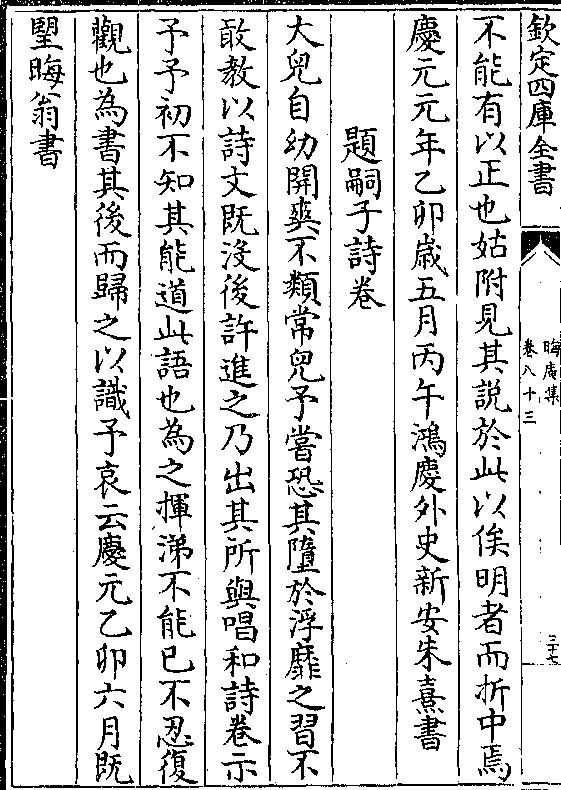 欽定四庫全書
晦庵集
卷八十三
三十七
不能有以正也姑附見其說於此以俟明者而折中焉
慶元元年乙卯歲五月丙午鴻慶外史新安朱熹書
題嗣子詩卷
大兒自幼開爽不類常兒予嘗恐其墮於浮靡之習不
敢教以詩文既沒後許進之乃出其所與唱和詩卷示
予予初不知其能道此語也為之揮涕不能已不忍復
觀也為書其後而歸之以識予哀云慶元乙卯六月既
朢晦翁書